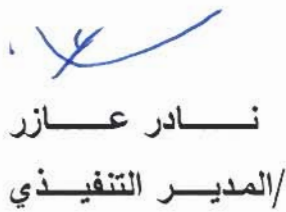 نادر عازر
المدير التنفيذي/